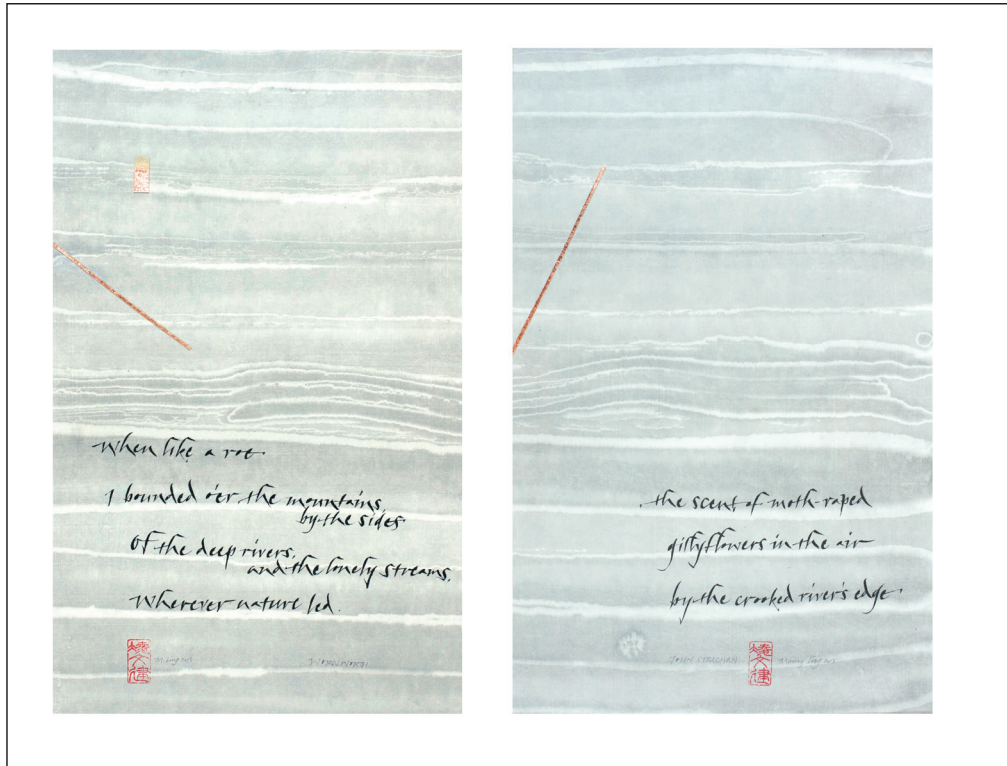 when like a roe
I bounded o'er the mountains,
by the sides
Of the deep rivers,
and the lonely streams,
Wherever nature led.
the scent of moth-raped
gillyflowers in the air
by the crooked river's edge
JOHN STRACHAN